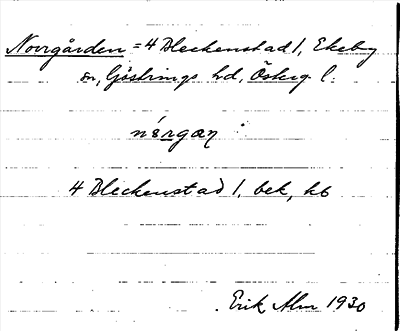 Norrgården = 4 Bleckenstad 1, Ekeby
sn, Göstrings hd, Östtg. l.
4 Bleckenstad 1, bek, kb
Erik Alm 1930